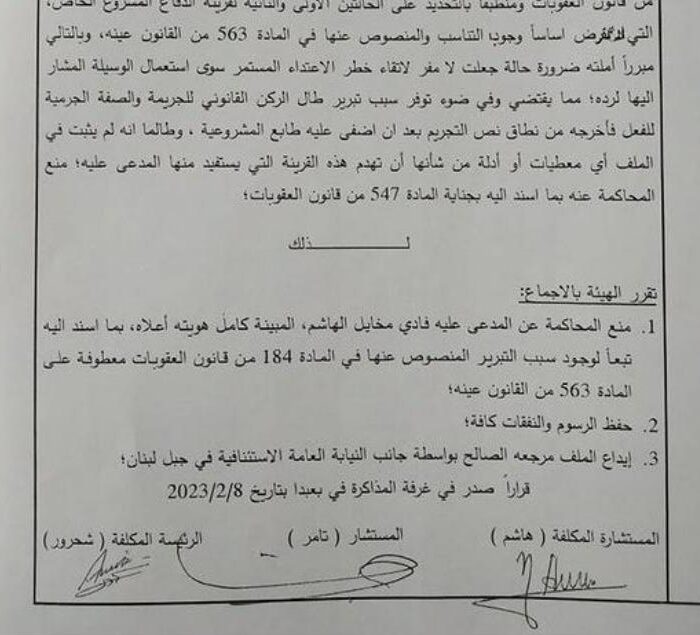 من قانون العقوبات ومنطبقاً بالتحديد على الحالتين الأولى والثانية لقرينة الدفاع المشروع الخاص،
التي تفرض اساساً وجوب التناسب والمنصوص عنها في المادة 563 من القانون عينه، وبالتالي
مبرراً أملته ضرورة حالة جعلت لا مفر لاتقاء خطر الاعتداء المستمر سوى استعمال الوسيلة المشار
اليها لرده؛ مما يقتضي وفي ضوء توفر سبب تبرير طال الركن القانوني للجريمة والصفة الجرمية
للفعل فأخرجه من نطاق نص التجريم بعد ان اضفى عليه طابع المشروعية ، وطالما انه لم يثبت في
الملف أي معطيات أو أدلة من شأنها أن تهدم هذه القرينة التي يستفيد منها المدعى عليه؛ منع
المحاكمة عنه بما اسند اليه بجناية المادة 547 من قانون العقوبات؛
لـــــــــــــذلك
تقرر الهيئة بالاجماع:
1. منع المحاكمة عن المدعى عليه فادي مخايل الهاشم، المبينة كامل هويته أعلاه، بما اسند اليه
تبعاً لوجود سبب التبرير المنصوص عنها في المادة 184 من قانون العقوبات معطوفة على
المادة 563 من القانون عينه؛
2. حفظ الرسوم والنفقات كافة؛
3. إيداع الملف مرجعه الصالح بواسطة جانب النيابة العامة الاستئنافية في جبل لبنان؛
قراراً صدر في غرفة المذاكرة في بعبدا بتاريخ 2023/2/8
المستشارة المكلفة ( هاشم ) المستشار ( تامر ) الرئيسة المكلفة ( شحرور )